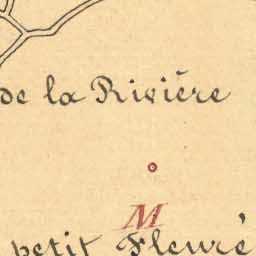 de la Rivière
M
petit Fleuré